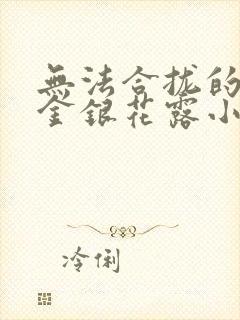 無法合拢的
金銀花露小
冷俐